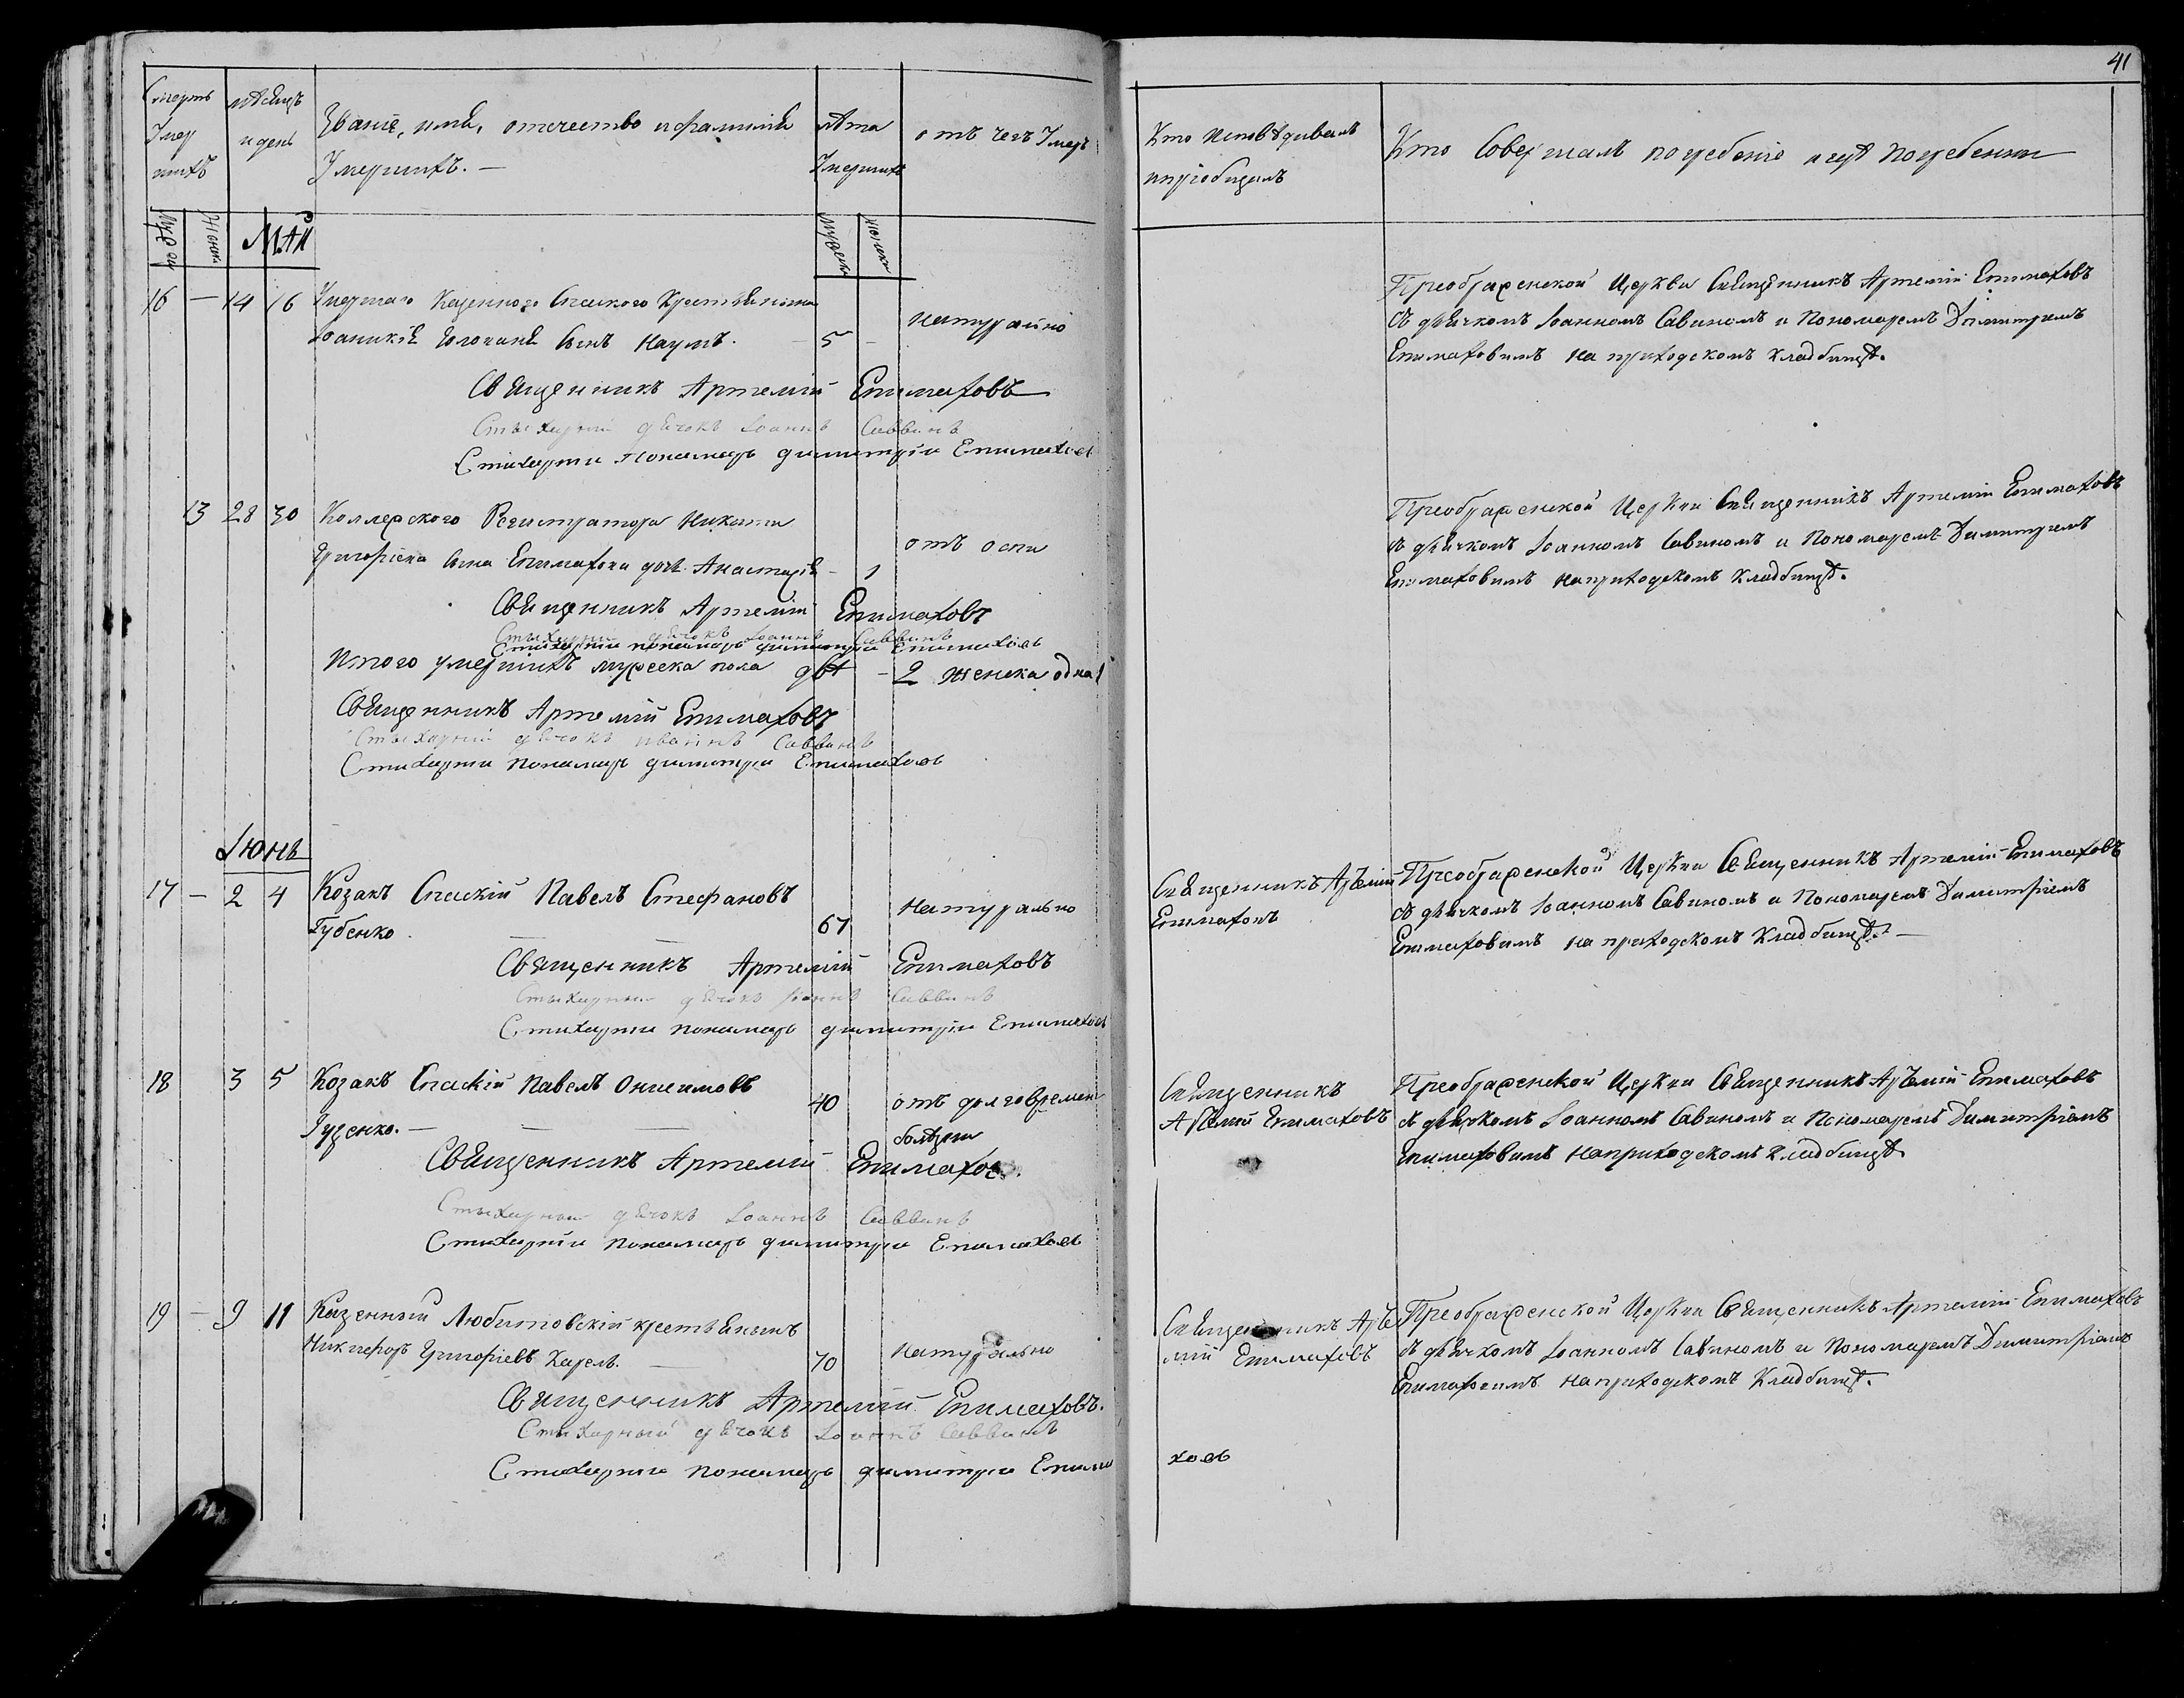 41
Смерть
Умер
шихъ
мѣсяцъ
и день
Званіе, имя, отчество и фамилія
Умершихъ. —
лѣта
Умершихъ
отъ чего Умеръ
Кто исповѣдивалъ
и пріобщалъ
Кто Совершалъ погребеніе и гдѣ погребенны
МАЙ
16 — 14 16 Умершаго Казенного Спаского Крестьянина
сынъ Наумъ. — 5 — натурально
Священникъ Артемій Епимаховъ
Стыхарний дячокъ Іоаннъ Саввинъ
Стихарни Понамарь димитрій Епимахов
Преображенской Церкви Священникъ Артемій Епимаховъ
съ дячкомъ Іоанномъ Савиномъ и Пономаремъ Димитріемъ
Епимаховимъ на приходскомъ кладбищѣ.
13 28 30 Коллежского Регистратора Никити
Григоріева сына Епимахова дочь Анастасія — 1 отъ оспи
Священникъ Артемій Епимаховъ
Стыхарни дячокъ Іоаннъ Саввинъ
Стихарни понамарь димитрій Епимахов
Преображенской Церкви Священникъ Артемій Епимаховъ
съ дячкомъ Іоанномъ Савиномъ и Пономаремъ Димитріемъ
Епимаховимъ на приходскомъ Кладбищѣ.
Итого умершихъ мужеска пола двѣ — 2 женска одна 1
Священникъ Артемій Епимаховъ
Стыхарний дячокъ иваннъ Саввинъ
Стихарни понамарь димитрій Епимахов
Іюнь
17 — 2 4 Козакъ Спаскій Павелъ Стефановъ
Губенко 67 Натурально
Священникъ Артемій Епимаховъ
Стыхарный дячокъ Іоаннъ Саввинъ
Стихарни понамарь димитрій Епимахов
Священникъ Артемій
Епимаховъ
Преображенской Церкви Священникъ Артемій Епимаховъ
съ дячкомъ Іоанномъ Савиномъ и Пономаремъ Димитріемъ
Епимаховимъ на приходскомъ Кладбищѣ. —
18 3 5 Козакъ Спаскій Павелъ Онисимовъ
40 отъ долговремен
болѣзни
Священникъ Артемій Епимахов.
Стыхарный дячокъ Іоаннъ Саввинъ
Стихарни понамарь димитрій Епимахов
Священникъ
Артемій Епимаховъ
Преображенской Церкви Священникъ Артемій Епимаховъ
съ дячкомъ Іоанномъ Савиномъ и Пономаремъ Димитріемъ
Епимаховимъ на приходскомъ Кладбищѣ
19 — 9 11 Казенный Любитовскій крестьянинъ
Никифоръ Григоріевъ Карель. — 70 натурально
Священникъ Артемій Епимаховъ.
Стыхарный дячокъ Іоаннъ Саввинъ
Стихарни понамарь димитрій Епима
хов
Священникъ Арте
мій Епимаховъ
Преображенской Церкви Священникъ Артемій Епимаховъ
съ дячкомъ Іоанномъ Савиномъ и Пономаремъ Димитріемъ
Епимаховимъ на приходскомъ Кладбищѣ.